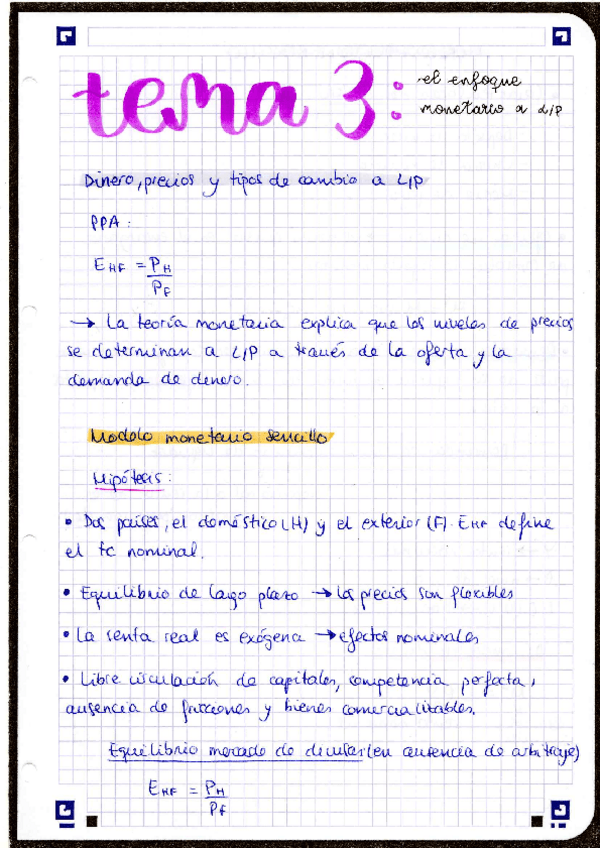 tema 3: el enfoque
monetario a L/P
Dinero, precios y tipos de cambio a L/P
PPA:
E HF = P H / P F
→ La teoría monetaria explica que los niveles de precios
se determinan a L/P a través de la oferta y la
demanda de dinero.
Modelo monetario sencillo
Hipótesis:
• Dos países, el doméstico (H) y el exterior (F). E HF define
el tc nominal.
• Equilibrio de largo plazo → los precios son flexibles
• La renta real es exógena → efectos nominales
• Libre circulación de capitales, competencia perfecta,
ausencia de fricciones y bienes comercializables.
Equilibrio mercado de divisas (en ausencia de arbitraje)
E HF = P H / P F